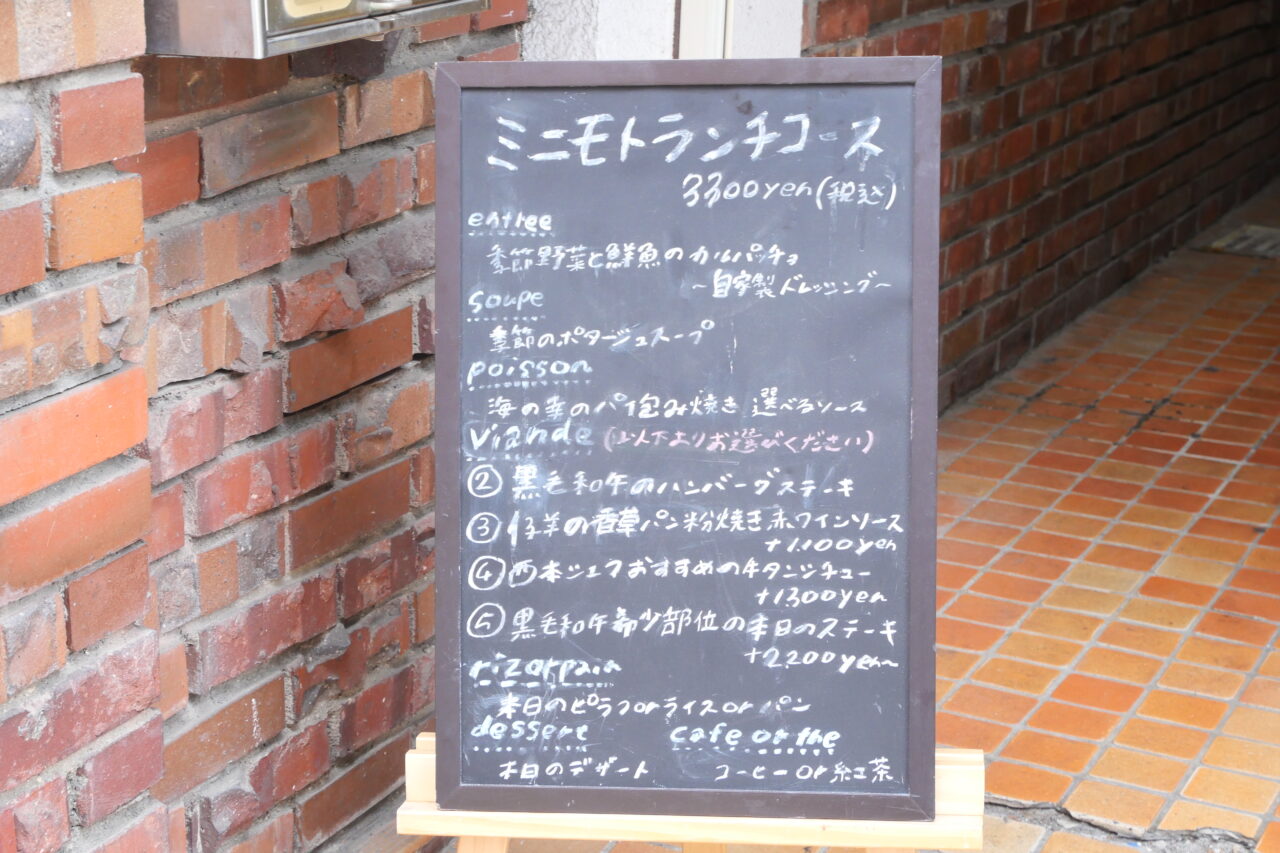 ミニモトランチコース
3300yen(税込)
entree
季節野菜と鮮魚のカルパッチョ
~自家製ドレッシング~
soupe
季節のポタージュスープ
poisson
海の幸のパイ包み焼き 選べるソース
viande (以下よりお選びください)
② 黒毛和牛のハンバーグステーキ
③ 仔羊の香草パン粉焼き 赤ワインソース
+1,100yen
④ 西本シェフおすすめの牛タンシチュー
+1300yen
⑤ 黒毛和牛希少部位の本日のステーキ
+2200yen~
riz or pain
本日のピラフorライスorパン
dessert cafe or the
本日のデザート コーヒーor紅茶